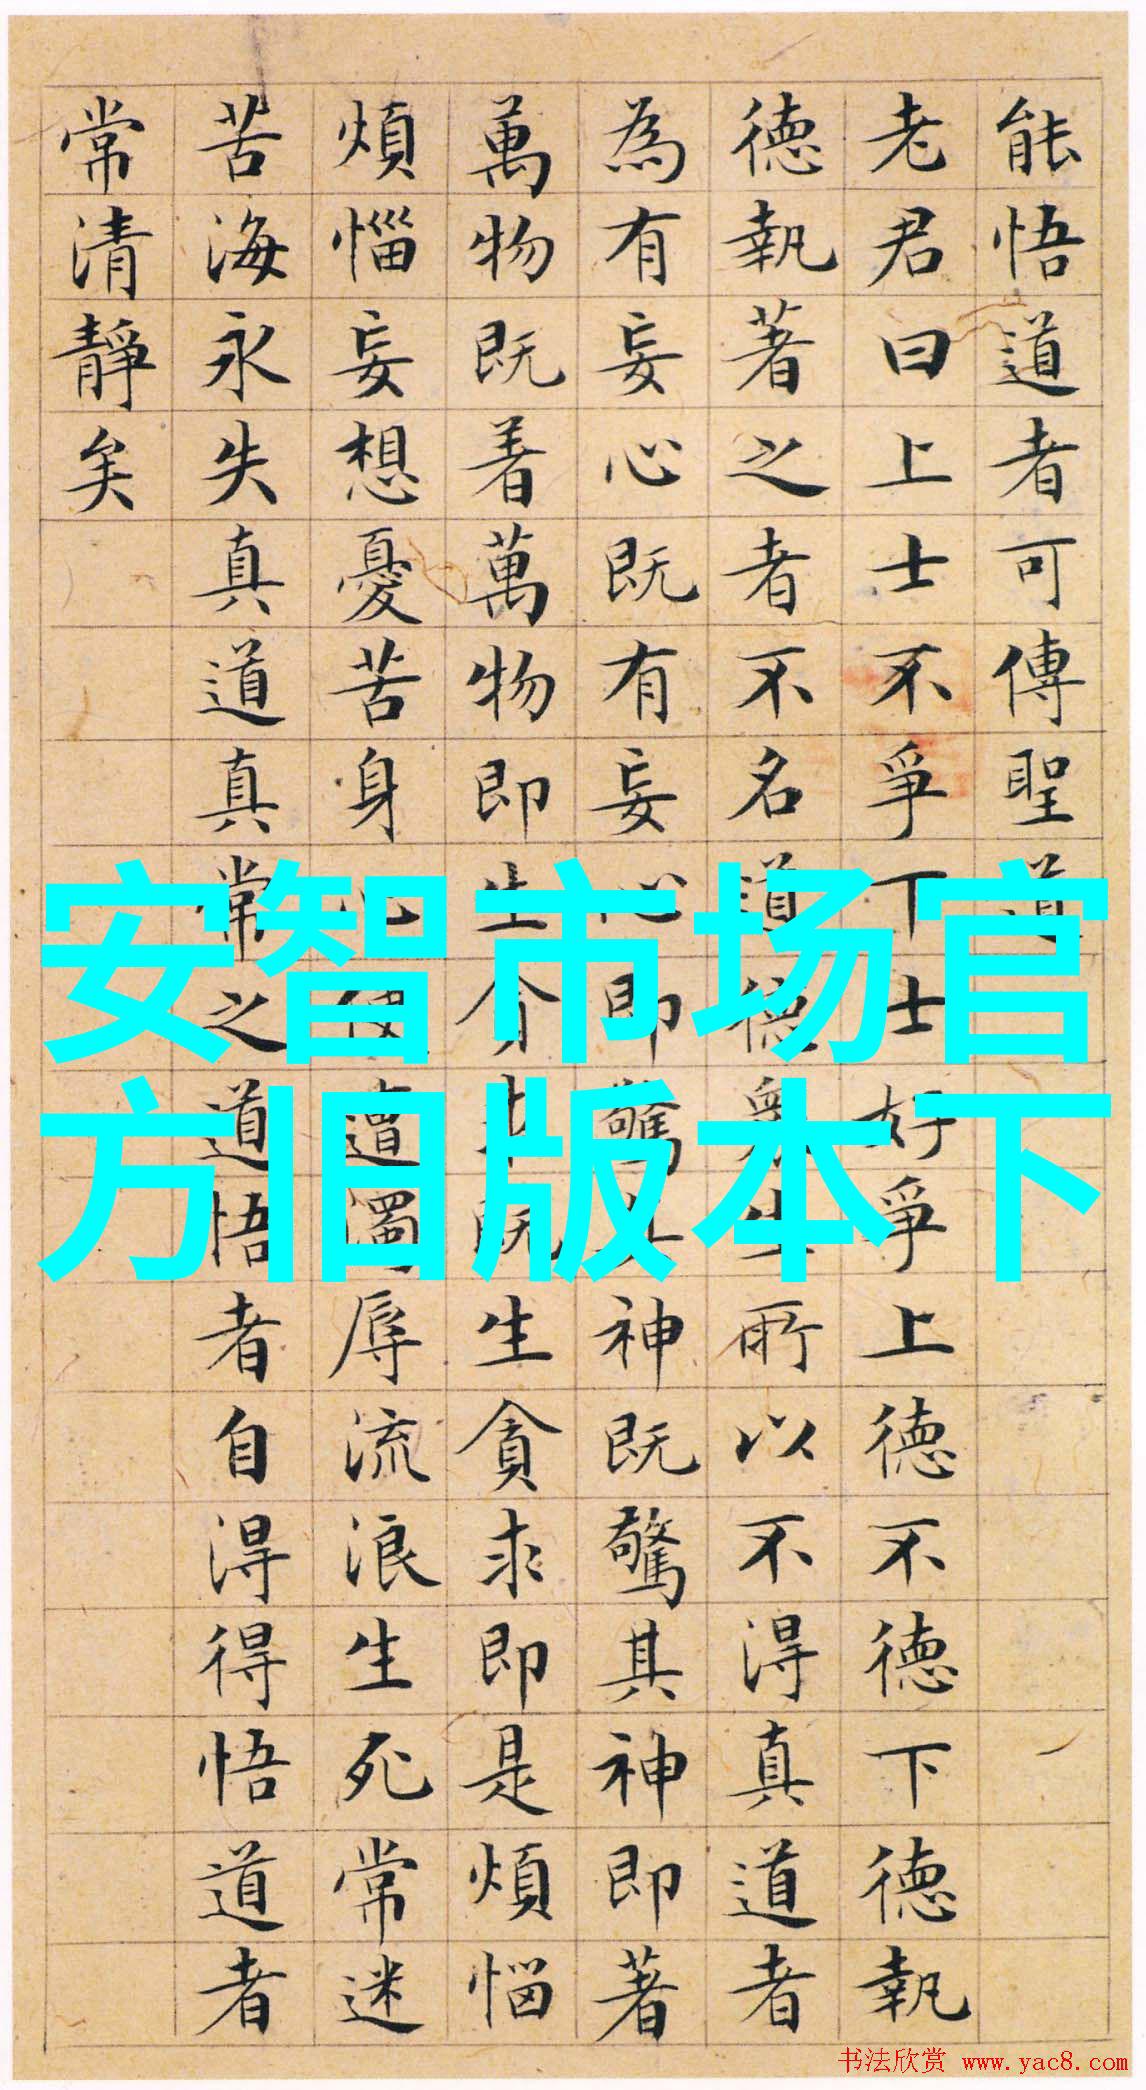 能悟道者可傳聖道
老君曰上士不爭下士好爭上德不德下德執
德執著之者不名道德眾生所以不得真道者
為有妄心既有妄心即驚其神既驚其神即著
萬物既着萬物即生貪求既生貪求即是煩惱
煩惱妄想憂苦身心便遭濁辱流浪生死常迷
苦海永失真道真常之道悟者自得得悟道者
常清靜矣
安智市场官
方旧版本下
书法欣赏 www.yac8.com